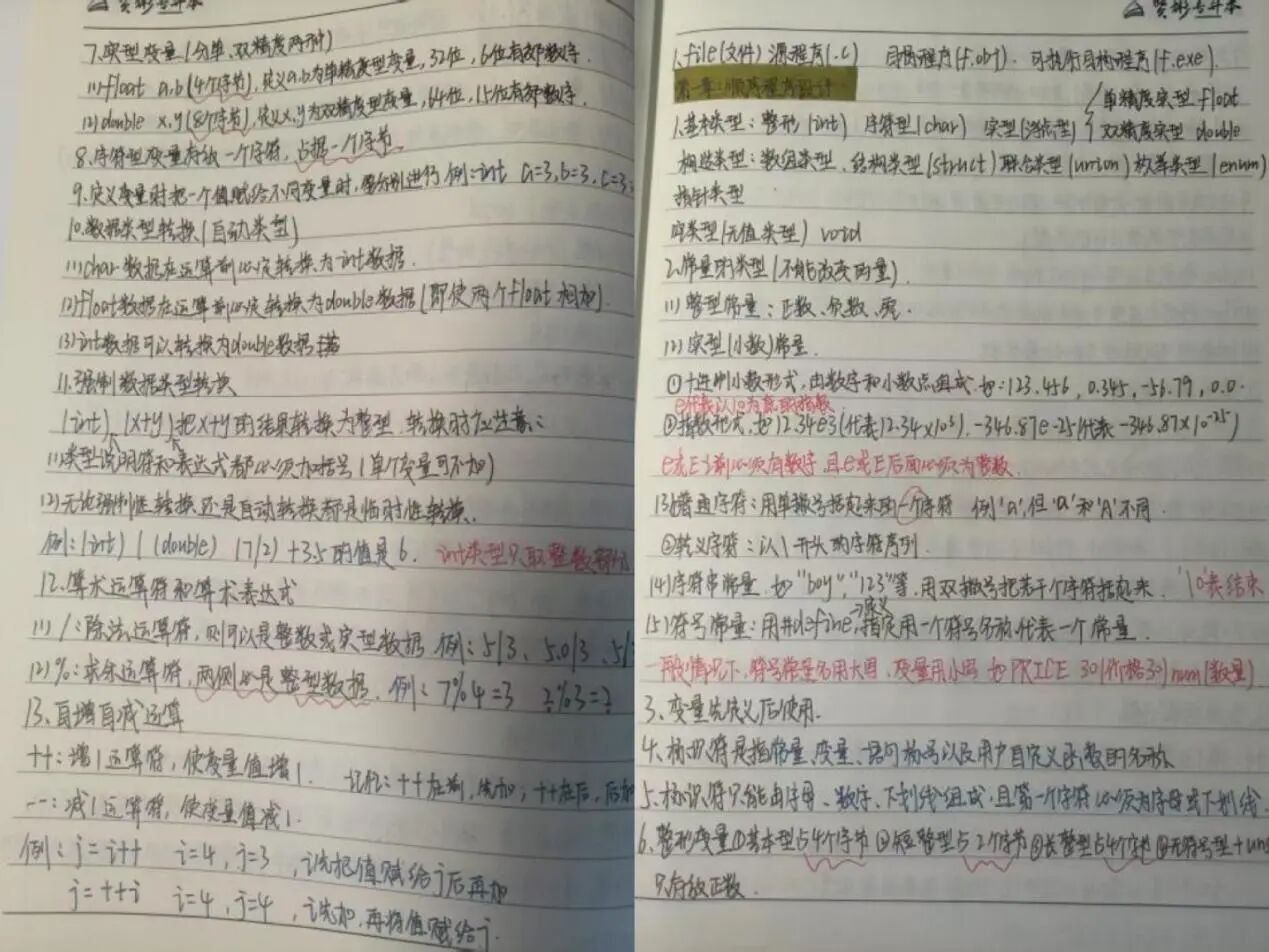 贤彬专升本
7.实型变量(分单、双精度两种)
(1)float a,b(4个字节),定义a,b为单精度型变量,32位,6位有效数字.
(2)double x,y(8个字节),定义x,y为双精度型变量,64位,15位有效数字.
8.字符型变量存放一个字符,占据一个字节
9.定义变量时把一个值赋给不同变量时,需分别进行 例:int a=3,b=3,c=3;
10.数据类型转换(自动类型)
(1)char数据在运算前必定转换为int数据.
(2)float数据在运算前必定转换为double数据(即使两个float相加).
(3)int数据可以转换为double数据
11.强制数据类型转换
(int)(x+y)把x+y的结果转换为整型.转换时应注意:
(1)类型说明符和表达式都必须加括号(单个变量可不加)
(2)无论强制性转换还是自动转换都是临时性转换.
例:(int)((double)(7/2)+3.5的值是6. int类型只取整数部分
12.算术运算符和算术表达式
(1)/:除法运算符,则可以是整数或实型数据 例:5/3、5.0/3、5/
(2)%:求余运算符,两侧必是整型数据.例:7%4=3 2%3=2
13.自增自减运算
++:增1运算符,使变量值增1. 记忆:++在前,先加;++在后,后加
--:减1运算符,使变量值减1.
例:j=i++ i=4,j=3,i先把值赋给j后再加
j=++i i=4,j=4,i先加,再将值赋给j.
贤彬专升本
1.file(文件) 源程序(.c) 目标程序(f.obj). 可执行目标程序(f.exe).
第一章:顺序程序设计
1.基本类型:整形(int) 字符型(char) 实型(浮点型) 单精度实型 float
双精度实型 double
构造类型:数组类型、结构类型(struct)联合类型(union)枚举类型(enum)
指针类型
空类型(无值类型) void
2.常量的类型(不能改变的量).
(1)整型常量:正数、负数、零.
(2)实型(小数)常量.
①十进制小数形式,由数字和小数点组成.如:123.456,0.345,-56.79,0.0.
e代表以10为底的指数
②指数形式,如12.34e3(代表12.34×10³).-346.87e-25(代表-346.87×10⁻²⁵)
e或E之前必须有数字,且e或E后面必须为整数.
(3)①普通字符:用单撇号括起来的一个字符 例'a',但'a'和'A'不同.
②转义字符:以\开头的字符序列.
(4)字符串常量.如"boy","123"等,用双撇号把若干个字符括起来. '\0'表结束
→定义
(5)符号常量:用#define,指定用一个符号名称代表一个常量.
一般情况下,符号常量名用大写,变量用小写 如PRICE 30(价格30) num(数量)
3、变量先定义后使用.
4、标识符是指常量、变量、语句标号以及用户自定义函数的名称
5、标识符只能由字母、数字、下划线组成,且第一个字符必须为字母或下划线.
6、整形变量①基本型占4个字节②短整型占2个字节③长整型占4个字节④无符号型+uns
只存放正数.